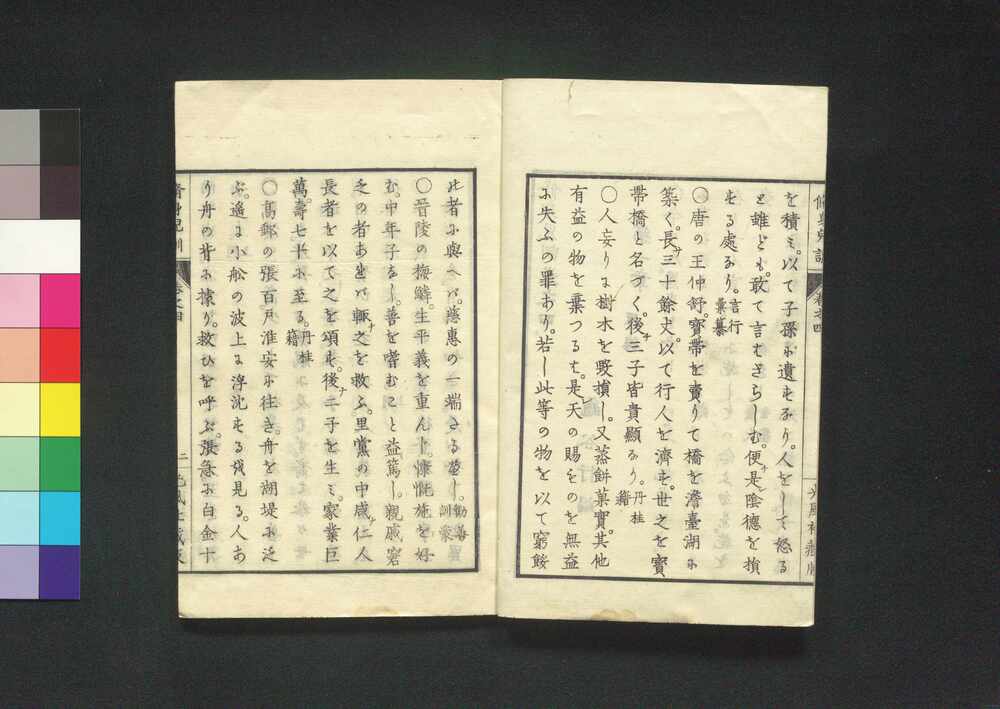 修身兒訓
卷之四
を積ミ。以て子孫に遺すなり。人をして怒る
と雖ども。敢て言はざらしむ。便ナ是陰德を損
する處なり。言行彙纂
〇唐の王仲舒。寶帶を賣りて橋を澹臺湖に
築く。長サ三十餘丈。以て行人を濟す。世之を寶
帶橋と名づく。後チ三子皆貴顯なり。丹桂籍
〇人妄りに樹木を毀損し。又蒸餅菓實。其他
有益の物を棄つるは。是レ天の賜ものを無益
に失ふの罪あり。若し此等の物を以て窮餒
此者に與へバ。慈惠の一端たる歪し。勸善訓蒙
〇晉陵の梅鱗。生平義を重んじ。慷慨施を好
む。中年子なし。善を嗜むこと益篤し。親戚窘
乏の者あれバ輒チ之を救ふ。里黨の中咸ナ仁人
長者を以て之を頌す。後チ二子を生ミ。家業巨
萬。壽七十に至る。丹桂籍
〇高郵の張百戶淮安に往き。舟を湖堤に泛
ぶ。遙に小船の波上に浮沈する残見る。人あ
り舟の背に據り。救ひを呼ぶ。張急に白金十
卷之四
二